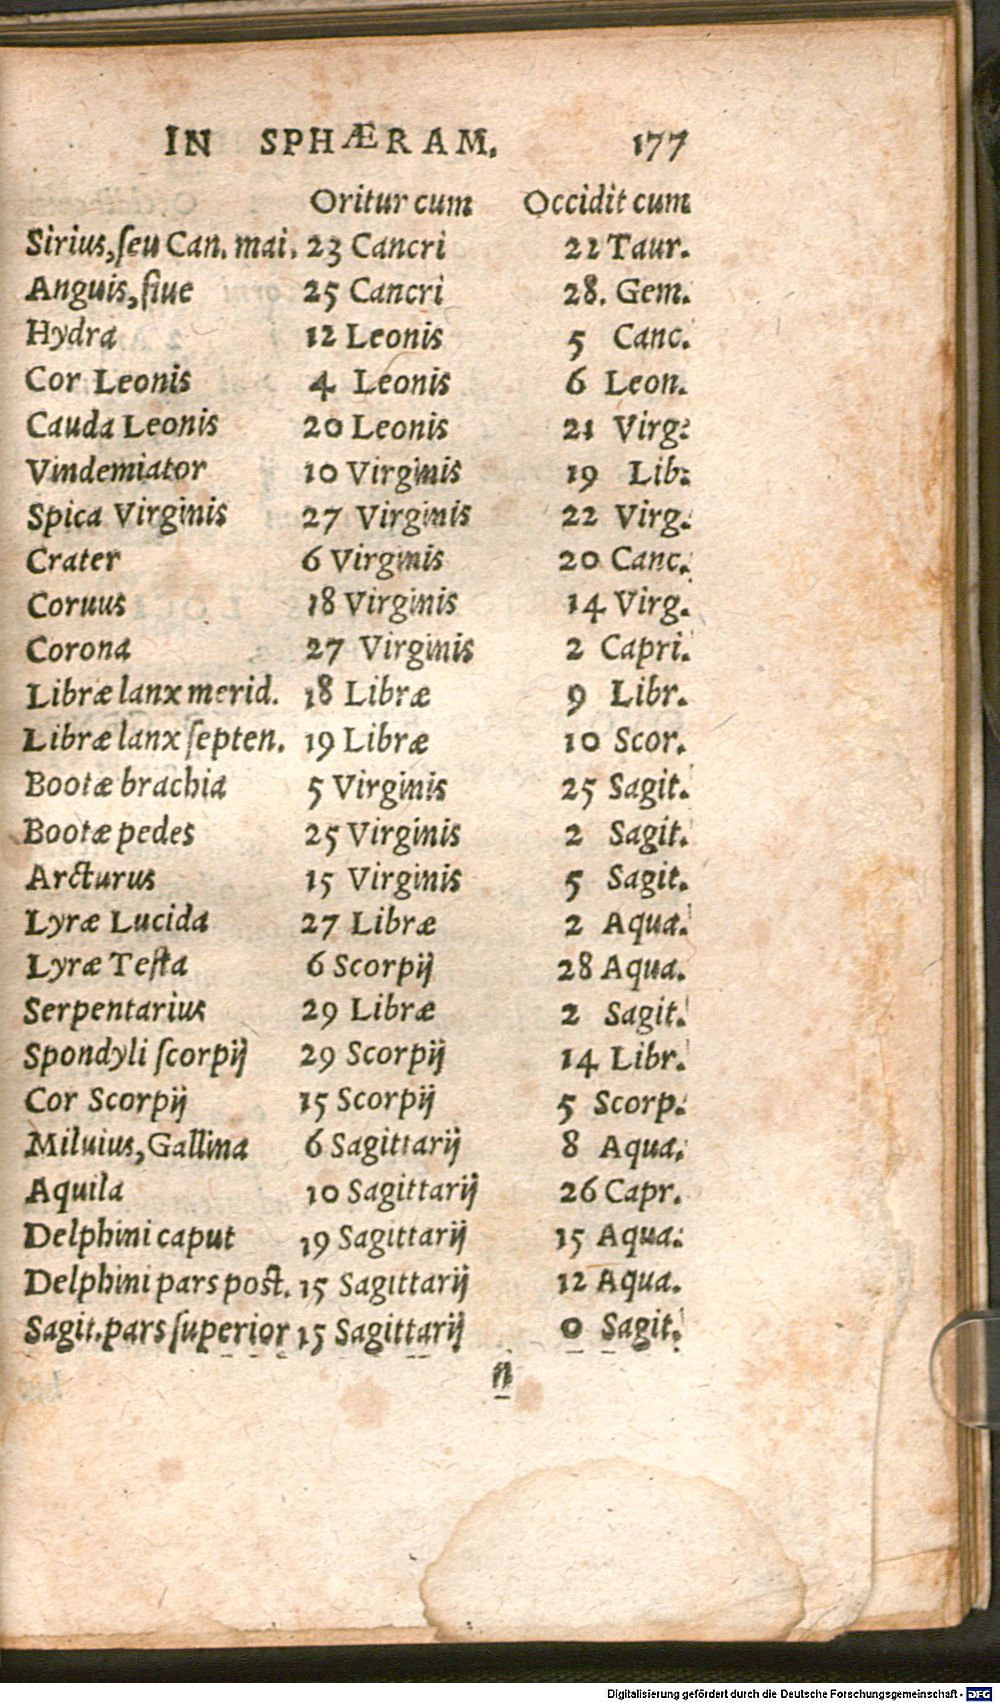 IN SPHÆRAM. 177
Oritur cum Occidit cum
Sirius, ſeu Can. mai. 23 Cancri 22 Taur.
Anguis, ſiue 25 Cancri 28. Gem.
Hydra 12 Leonis 5 Canc.
Cor Leonis 4 Leonis 6 Leon.
Cauda Leonis 20 Leonis 21 Virg:
Vindemiator 10 Virginis 19 Lib:
Spica Virginis 27 Virginis 22 Virg:
Crater 6 Virginis 20 Canc.
Coruus 18 Virginis 14 Virg.
Corona 27 Virginis 2 Capri.
Libræ lanx merid. 18 Libræ 9 Libr.
Libræ lanx ſepten. 19 Libræ 10 Scor.
Bootæ brachia 5 Virginis 25 Sagit.
Bootæ pedes 25 Virginis 2 Sagit.
Arcturus 15 Virginis 5 Sagit.
Lyræ Lucida 27 Libræ 2 Aqua.
Lyræ Teſta 6 Scorpij 28 Aqua.
Serpentarius 29 Libræ 2 Sagit.
Spondyli ſcorpij 29 Scorpij 14 Libr.
Cor Scorpij 15 Scorpij 5 Scorp.
Miluius, Gallina 6 Sagittarij 8 Aqua.
Aquila 10 Sagittarij 26 Capr.
Delphini caput 19 Sagittarij 15 Aqua.
Delphini pars poſt. 15 Sagittarij 12 Aqua.
Sagit. pars ſuperior 15 Sagittarij 0 Sagit.
Digitalisierung gefördert durch die Deutsche Forschungsgemeinschaft - DFG